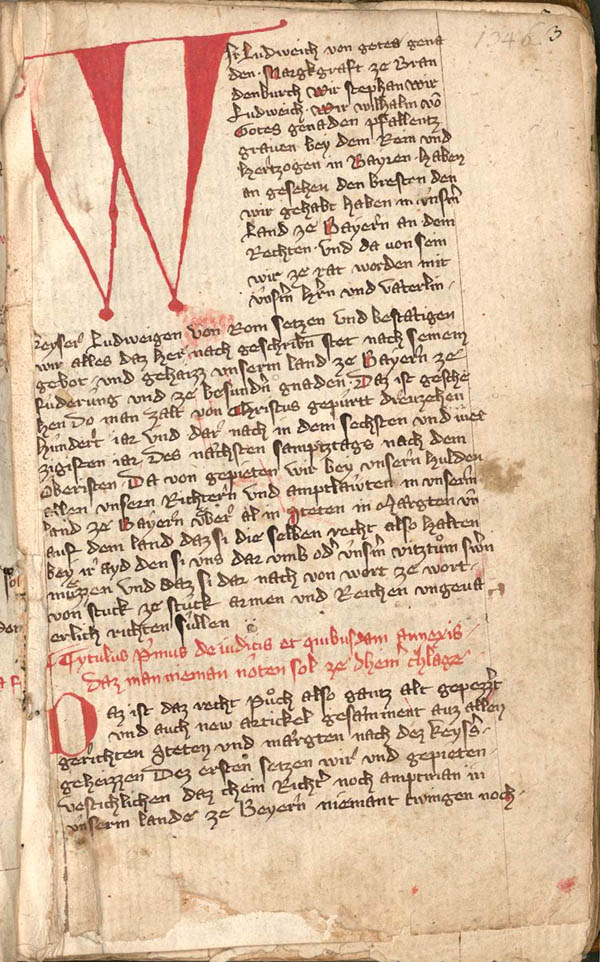 1346 3
WIr Ludweich von gotes gena
den Margkgraff ze Bran
denburch wir stephan wir
Ludweich wir wilhalm vō
Gotes genaden pfallentz
graven bey dem Rein und
hertzogen in Bayren haben
an gesehen den bresten den
wir gehabt haben in unserm
Land ze Bayern an dem
Rechten und da von sein
wir ze rat worden mit
unserm hern und vaterlin
keyser Ludweigen von Rom setzen und bestatigen
wir alles daz her nach geschriben stet nach seinem
gebot und gehaizz unserm land ze Bayern ze
furderung und ze besundern gnaden Daz ist gesche
hen Do man zalt von Christus gepurtt dreuzehen
hundert iar und dar nach in dem sechsten und vier
zigisten iar des nachsten samptztags nach dem
Oberisten Da von gepieten wir bey unsern hulden
allen unsern Richtern und amptlawten in unserm
land ze Bayern uber al in steten in Margten und
auf dem land daz si die selben recht also halten
bey ir ayd den si uns dar umb oder unserm vitztum swern
muezzen und daz si dar nach von wort ze wort
von stuck ze stuck armen und Reichen ungeva
erlich richten sullen
Tytulus Primus de iudiciis et quibusdam annexis
Daz man nieman nöten sol ze dhein chlage
Daz ist daz recht Puͦch also gantz alt gepezzert
und auch new artickel gesamment auz allen
gerichten steten und margten nach dez keysers
geheizzen Dez ersten setzen wir und gepieten
vestichlichen daz chein Richter noch amptman in
unserm lande ze Beyern niemant twingen noch